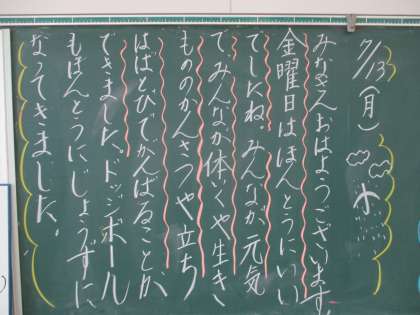 7/13(月)
みなさんおはようございます。
金曜日はほんとうにいい
でしたね。みんなが元気
でみんなが体いくや生き
もののかんさつや立ち
はばとびでがんばることが
できました。ドッジボール
もほんとうにじょうずに
なってきました。